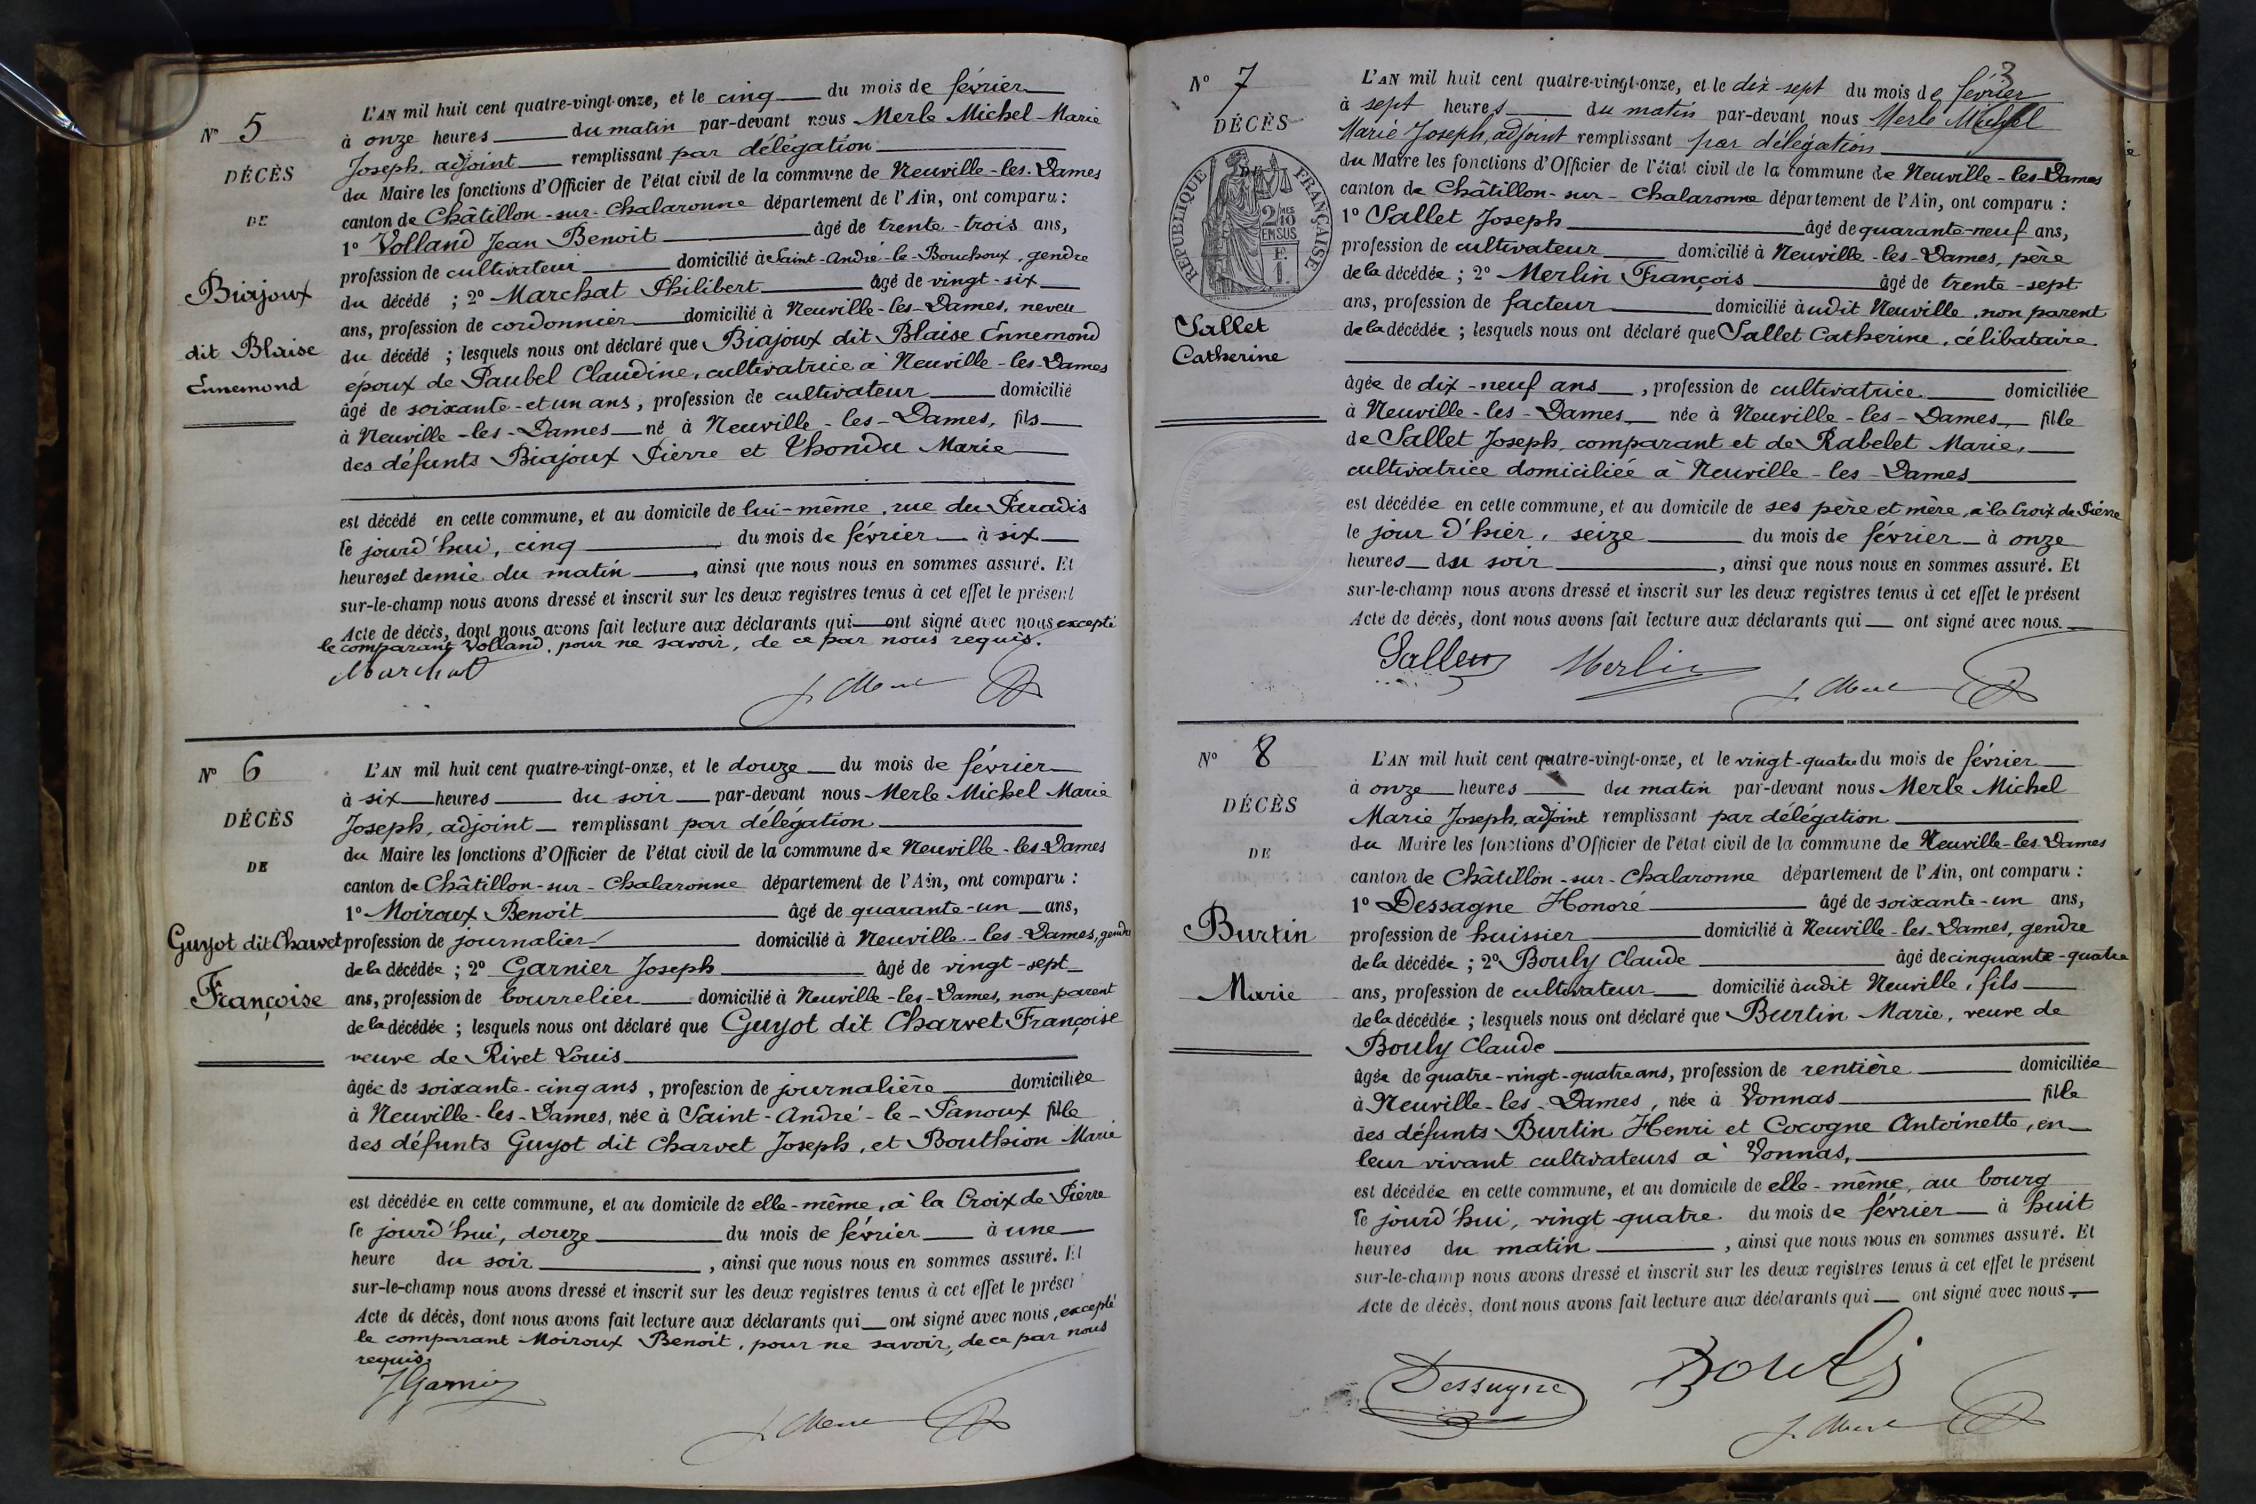 N° 5
DÉCÈS
DE
Biajoux
dit Blaise
Ennemond
L'AN mil huit cent quatre-vingt-onze, et le cinq du mois de février
à onze heures du matin par-devant nous Merle Michel Marie
Joseph, adjoint remplissant par délégation
du Maire les fonctions d'Officier de l'état civil de la commune de Neuville-les-Dames
canton de Châtillon-sur-Chalaronne département de l'Ain, ont comparu :
1° Volland Jean Benoit âgé de trente-trois ans,
profession de cultivateur domicilié à Saint-André-le-Bouchoux, gendre
du décédé ; 2° Marchat Philibert âgé de vingt-six
ans, profession de cordonnier domicilié à Neuville-les-Dames, neveu
du décédé ; lesquels nous ont déclaré que Biajoux dit Blaise Ennemond
époux de Paubel Claudine, cultivatrice à Neuville-les-Dames
âgé de soixante-et un ans, profession de cultivateur domicilié
à Neuville-les-Dames né à Neuville-les-Dames, fils
des défunts Biajoux Pierre et Chondu Marie
est décédé en cette commune, et au domicile de lui-même, rue du Paradis
le jourd'hui, cinq du mois de février à six
heures et demie du matin, ainsi que nous nous en sommes assuré. Et
sur-le-champ nous avons dressé et inscrit sur les deux registres tenus à cet effet le présent
Acte de décès, dont nous avons fait lecture aux déclarants qui ont signé avec nous excepté
le comparant Volland, pour ne savoir, de ce par nous requis.
Marchat
J. Merle
N° 6
DÉCÈS
DE
Guyot dit Charvet
Françoise
L'AN mil huit cent quatre-vingt-onze, et le douze du mois de février
à six heures du soir par-devant nous Merle Michel Marie
Joseph, adjoint remplissant par délégation
du Maire les fonctions d'Officier de l'état civil de la commune de Neuville-les-Dames
canton de Châtillon-sur-Chalaronne département de l'Ain, ont comparu :
1° Moiroux Benoit âgé de quarante-un ans,
profession de journalier domicilié à Neuville-les-Dames, gendre
de la décédée ; 2° Garnier Joseph âgé de vingt-sept
ans, profession de bourrelier domicilié à Neuville-les-Dames, non parent
de la décédée ; lesquels nous ont déclaré que Guyot dit Charvet Françoise
veuve de Rivet Louis
âgée de soixante-cinq ans, profession de journalière domiciliée
à Neuville-les-Dames, née à Saint-André-le-Panoux fille
des défunts Guyot dit Charvet Joseph, et Bouthion Marie
est décédée en cette commune, et au domicile de elle-même, à la Croix de Pierre
le jourd'hui, douze du mois de février à une
heure du soir, ainsi que nous nous en sommes assuré. Et
sur-le-champ nous avons dressé et inscrit sur les deux registres tenus à cet effet le présent
Acte de décès, dont nous avons fait lecture aux déclarants qui ont signé avec nous, excepté
le comparant Moiroux Benoit, pour ne savoir, de ce par nous
requis.
J Garnier
J. Merle
3
N° 7
DÉCÈS
RÉPUBLIQUE FRANÇAISE
2/10 MES
EN SUS
Sallet
Catherine
L'AN mil huit cent quatre-vingt-onze, et le dix-sept du mois de février
à sept heures du matin par-devant nous Merle Michel
Marie Joseph, adjoint remplissant par délégation
du Maire les fonctions d'Officier de l'état civil de la commune de Neuville-les-Dames
canton de Châtillon-sur-Chalaronne département de l'Ain, ont comparu :
1° Sallet Joseph âgé de quarante-neuf ans,
profession de cultivateur domicilié à Neuville-les-Dames, père
de la décédée ; 2° Merlin François âgé de trente-sept
ans, profession de facteur domicilié audit Neuville, non parent
de la décédée ; lesquels nous ont déclaré que Sallet Catherine, célibataire
âgée de dix-neuf ans, profession de cultivatrice domiciliée
à Neuville-les-Dames, née à Neuville-les-Dames, fille
de Sallet Joseph, comparant et de Rabelet Marie,
cultivatrice domiciliée à Neuville-les-Dames
est décédée en cette commune, et au domicile de ses père et mère, à la Croix de Pierre
le jour d'hier, seize du mois de février à onze
heures du soir, ainsi que nous nous en sommes assuré. Et
sur-le-champ nous avons dressé et inscrit sur les deux registres tenus à cet effet le présent
Acte de décès, dont nous avons fait lecture aux déclarants qui ont signé avec nous.
Sallet Merlin
J. Merle
N° 8
DÉCÈS
DE
Burtin
Marie
L'AN mil huit cent quatre-vingt-onze, et le vingt-quatre du mois de février
à onze heures du matin par-devant nous Merle Michel
Marie Joseph, adjoint remplissant par délégation
du Maire les fonctions d'Officier de l'état civil de la commune de Neuville-les-Dames
canton de Châtillon-sur-Chalaronne département de l'Ain, ont comparu :
1° Dessagne Honoré âgé de soixante-un ans,
profession de huissier domicilié à Neuville-les-Dames, gendre
de la décédée ; 2° Bouly Claude âgé de cinquante-quatre
ans, profession de cultivateur domicilié audit Neuville, fils
de la décédée ; lesquels nous ont déclaré que Burtin Marie, veuve de
Bouly Claude
âgée de quatre-vingt-quatre ans, profession de rentière domiciliée
à Neuville-les-Dames, née à Vonnas fille
des défunts Burtin Henri et Cocogne Antoinette, en
leur vivant cultivateurs à Vonnas,
est décédée en cette commune, et au domicile de elle-même, au bourg
le jourd'hui, vingt-quatre du mois de février à huit
heures du matin, ainsi que nous nous en sommes assuré. Et
sur-le-champ nous avons dressé et inscrit sur les deux registres tenus à cet effet le présent
Acte de décès, dont nous avons fait lecture aux déclarants qui ont signé avec nous.
Dessagne Bouly
J. Merle